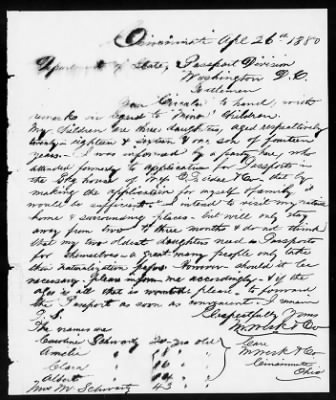 Cincinnati Apl 26th 1880
Department of State, Passport Division
Washington D.C.
Gentlemen
Your Circular to hand, with
remarks in regard to "Minor" Children.
My Children are three daughters, aged respectively
twenty eighteen & sixteen & one son of fourteen
years. I was informed by a party here, who
attended formerly to application for Passports in
the Bkg house of & Co. that by
making the application for myself & family it
would be sufficient. I intend to visit my native
home & surrounding places but will only stay
away from two to three months & do not think
that my two oldest daughters need Passports
for themselves a great many people only take
their naturalization papers. However should it be
necessary please inform me accordingly & if the
above is all that is wanted please to forward
the Passport as soon as convenient. I remain
Respectfully Yours
P.S.
The names are
Caroline Schwartz 20 yrs old
Amelie " 18 "
Clara " 16 "
Albert " 14 "
Mrs M. Schwartz 43 "
Care
& Co
Cincinnati
Ohio